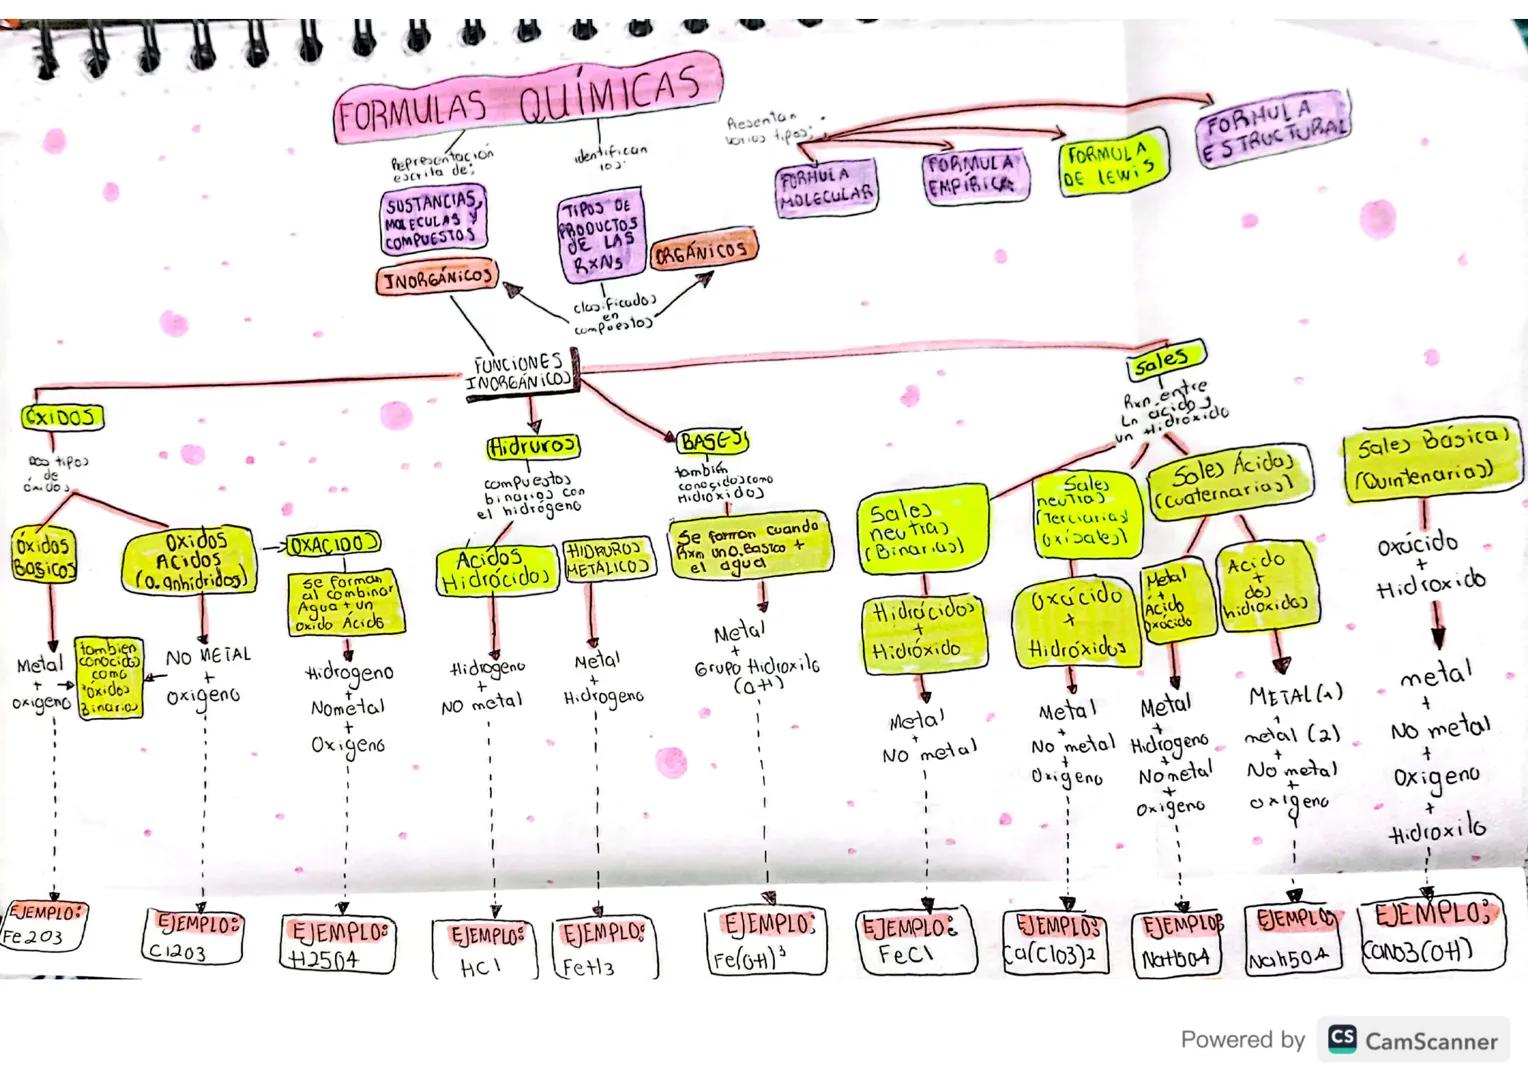 FORMULAS QUÍMICAS
Representación
escrita de:
SUSTANCIAS,
MOLECULAS Y
COMPUESTOS
identifican
los:
TIPOS DE
PRODUCTOS
DE LAS
RXNs
clasificados
en
compuestos
INORGÁNICOS
ORGÁNICOS
Presentan
varios tipos:
FORMULA
MOLECULAR
FORMULA
EMPÍRICA
FORMULA
DE LEWIS
FORMULA
ESTRUCTURAL
FUNCIONES
INORGÁNICOS
ÓXIDOS
Dos tipos
de
óxidos
Óxidos
Básicos
Metal
+
oxigeno
también
conocidos
como
"óxidos
Binarios
EJEMPLO:
Fe2O3
Oxidos
Acidos
(o. anhidridos)
NO METAL
+
oxigeno
EJEMPLO:
Cl2O3
OXACIDOS
se forman
al combinar
Agua + un
oxido Ácido
Hidrogeno
+
Nometal
+
Oxigeno
EJEMPLO:
H2SO4
Hidruros
compuestos
binarios con
el hidrógeno
Acidos
Hidrócidos
Hidrogeno
+
NO metal
EJEMPLO:
HCl
HIDRUROS
METÁLICOS
Metal
+
Hidrogeno
EJEMPLO:
FeH3
BASES
también
conocidos como
Hidróxidos
Se forman cuando
Rxn un o. Básico +
el agua
Metal
+
Grupo Hidroxilo
(OH)
EJEMPLO:
Fe(OH)3
Sales
Rxn entre
Ln ácidos
un Hidróxido
Sales
neutras
(Binarias)
Hidrácidos
+
Hidróxido
Metal
+
No metal
EJEMPLO:
FeCl
Sales
neutras
(Terciarias)
Oxisales)
Oxácido
+
Hidróxidos
Metal
+
No metal
+
Oxigeno
EJEMPLO:
Ca(ClO3)2
Sales Ácidas
(cuaternarias)
Metal
+
Ácido
Oxácido
Metal
+
Hidrogeno
+
No metal
+
Oxigeno
EJEMPLO:
NaHSO4
Acido
+
dos
hidroxidos
METAL(1)
+
metal (2)
+
No metal
+
oxigeno
EJEMPLO:
NaHSO4
Sales Básicas
(Quintenarias)
Oxácido
+
Hidroxido
metal
+
No metal
+
Oxigeno
+
Hidroxilo
EJEMPLO:
CaNO3(OH)
Powered by CS CamScanner